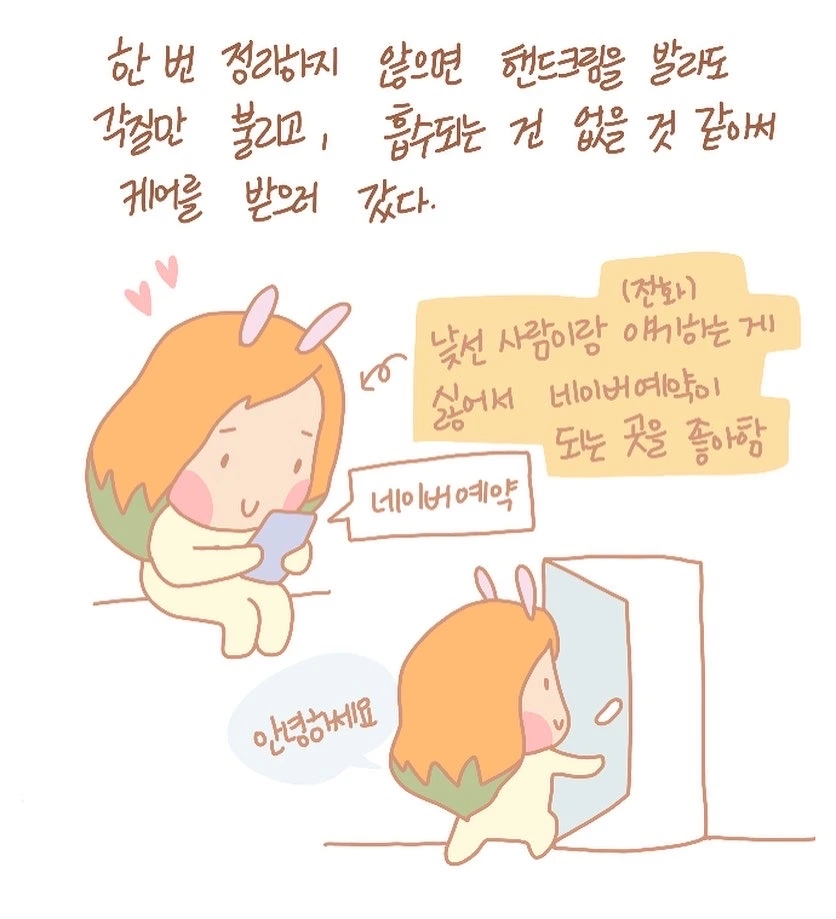 한 번 정리하지 않으면 핸드크림을 발라도
각질만 불리고, 흡수되는 건 없을 것 같아서
케어를 받으러 갔다.
(전화)
낯선 사람이랑 얘기하는 게
싫어서 네이버예약이
되는 곳을 좋아함
네이버예약
안녕하세요